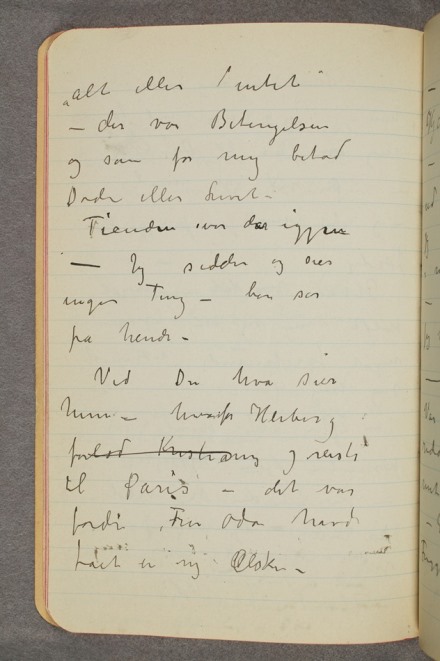 „alt eller intet"
– der var Betingelsen
og som for mig betød
Døden eller Livet –
Fienden var der igjen
– Jeg sidder og sier
ingen Ting – bare ser
på hende –
Ved Du hva sier
hun – hvorfor Herberg
forlod Kristiania og reiste
til Paris – det var
fordi Fru Oda havde
fået en ny Elsker –